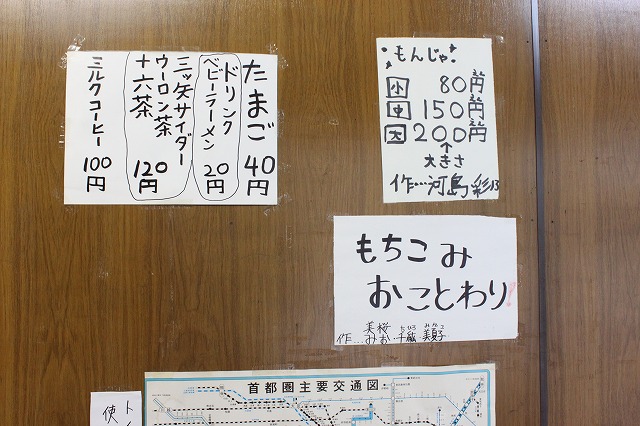 たまご 40円
ドリンク
ベビーラーメン 20円
三ッ矢サイダー
ウーロン茶
十六茶
120円
ミルクコーヒー 100円
もんじゃ
小 80円
中 150円
大 200円
↑
大きさ
作…河島彩
もちこみ
おことわり!
作…美桜 みお・千紘 ちひろ
首都圏主要交通図
ト
使